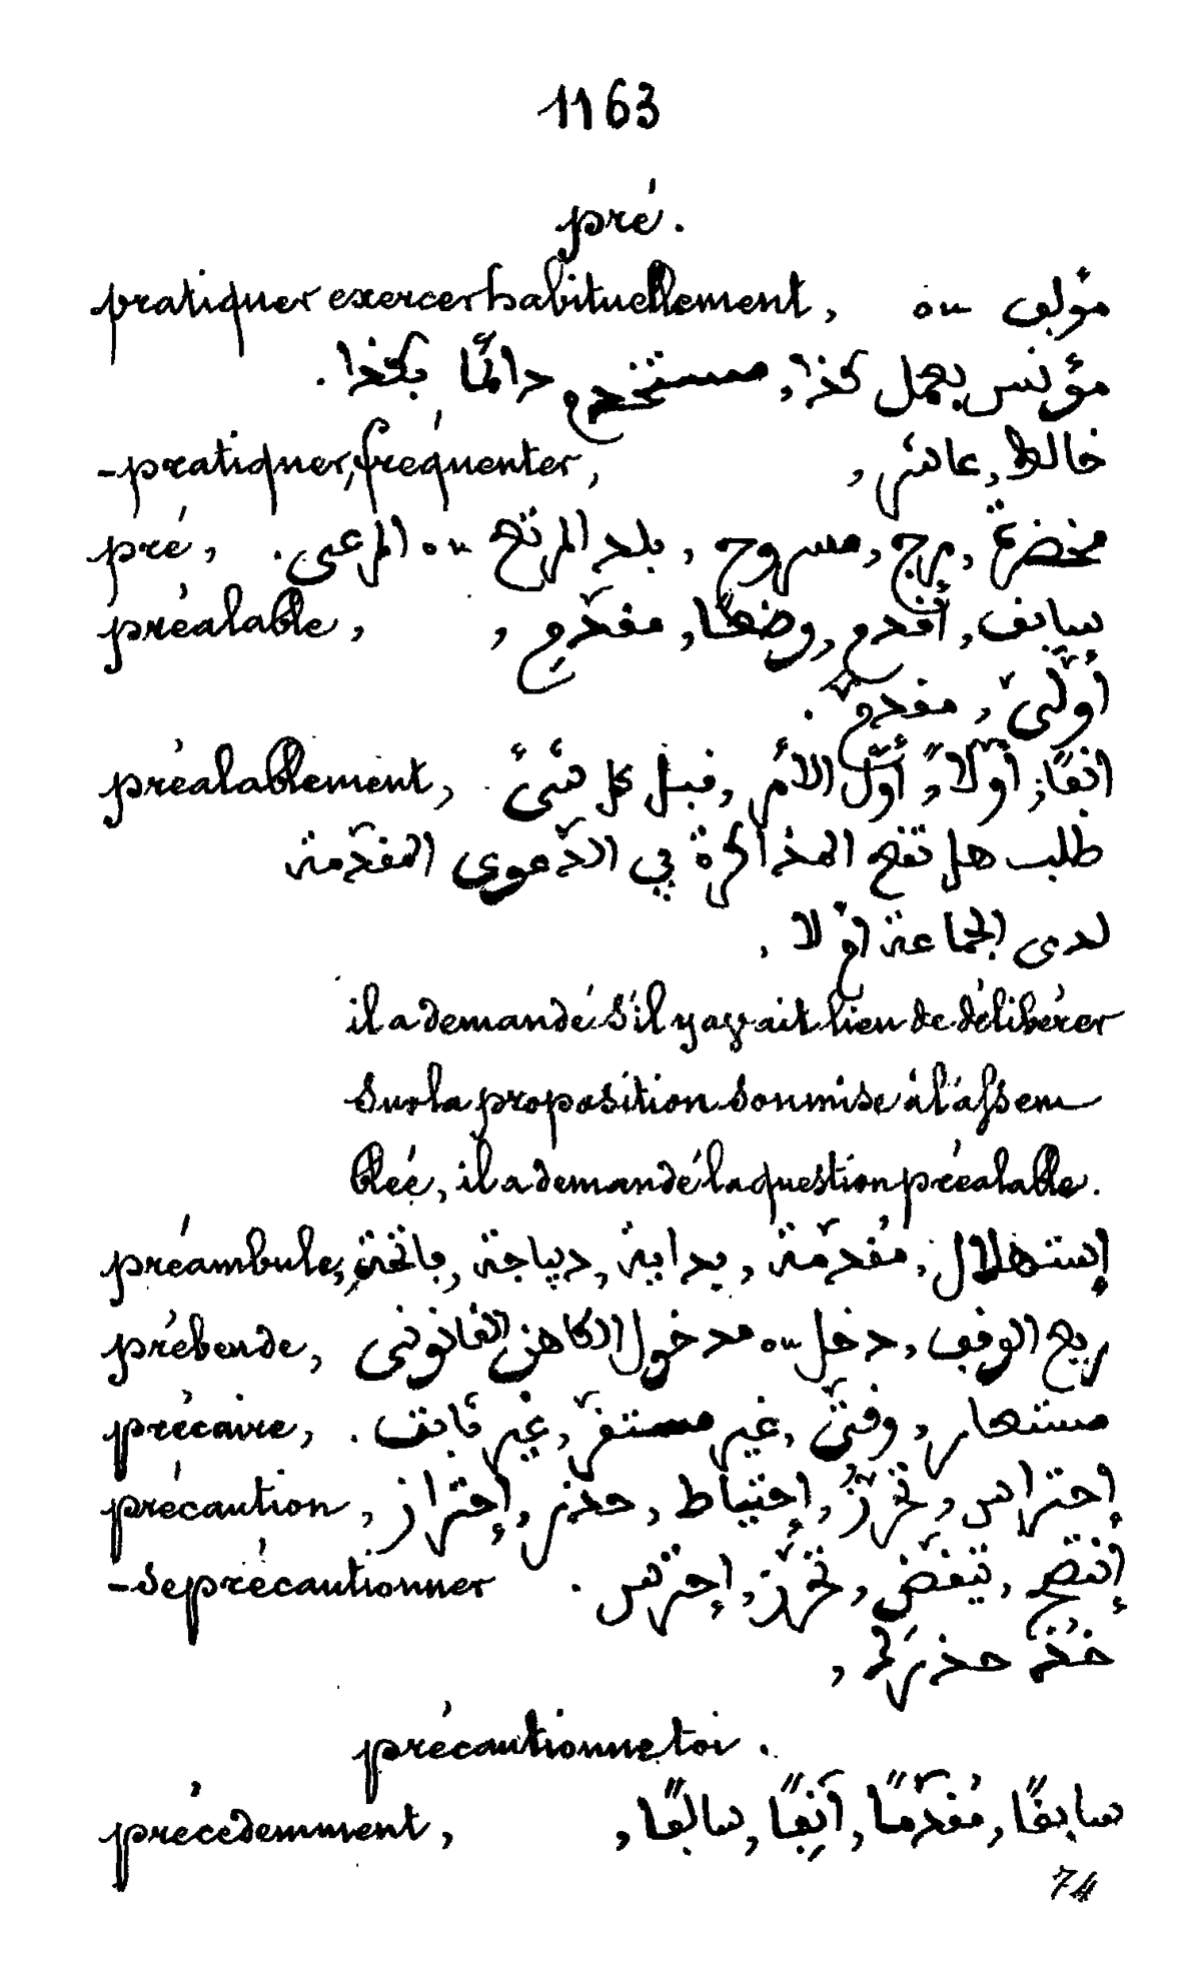 1163
pré.
pratiquer exercer habituellement, ou مؤلف
مؤنس بعمل كذا, مستخدم دائمًا بكذا.
-pratiquer, fréquenter, خالط, عاشر,
pré, مخضرة, مرج, مسروح, بلد المرتع ou المرعى.
préalable, سابق, أقدم, وضعًا, مقدّم,
أوّلىّ, مقدّم.
préalablement, انفًا, أوّلاً, أوّل الأمر, قبل كل شىء.
طلب هل تقع المذاكرة في الدّعوى المقدّمة
لدى الجماعة اوْ لا,
il a demandé s'il y avait lieu de délibérer
sur la proposition soumise à l'assem
blée, il a demandé la question préalable.
préambule, إستهلال, مُقدّمة, بداية, ديباجة, فاتحة,
prébende, ريع الوقف, دخل ou مدخول الكاهن القانونى
précaire, مستعار, وقتىّ, غير مستقرّ, غير ثابت.
précaution, إحتراس, تحرّزٌ, إحتياط, حذر, إحتراز,
-se précautionner إنتصح, تيقّض, تحرّز, إحترس.
خُذْ حذرَك,
précautionne toi.
précédemment, سابقًا, مُقدّمًا, آنِفًا, سالفًا,
74